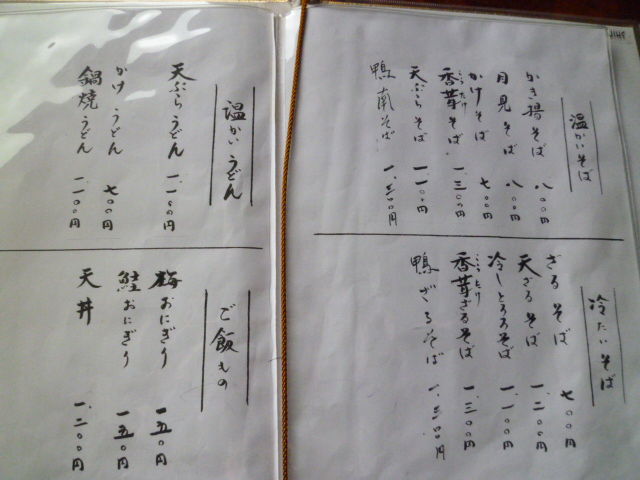 温かいそば
かき揚そば 八〇〇円
月見そば 八〇〇円
かけそば 七〇〇円
香茸そば 一、三〇〇円
天ぷらそば 一、一〇〇円
鴨南そば 一、三〇〇円
冷たいそば
ざるそば 七〇〇円
天ざるそば 一、二〇〇円
冷しとろろそば 一、一〇〇円
香茸ざるそば 一、三〇〇円
鴨ざるそば 一、三〇〇円
温かいうどん
天ぷらうどん 一、一〇〇円
かけうどん 七〇〇円
鍋焼うどん 一、一〇〇円
ご飯もの
梅おにぎり 一五〇円
鮭おにぎり 一五〇円
天丼 一、二〇〇円